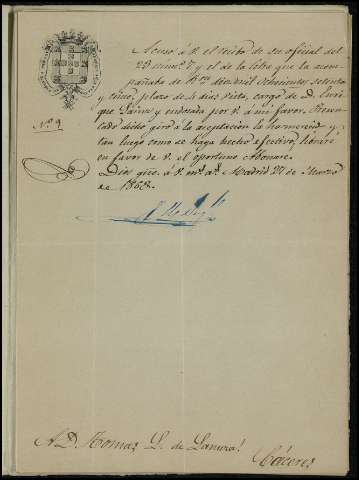 Acuso á V. el recibo de su oficial del
23 núm.º 7 y el de la letra que la acom-
pañaba de diez mil ochocientos setenta
y cinco, plazo de 4 días vista, cargo de D. Enri-
que y endosada por V. á mi favor.
Nº 9
dicho giro á la aceptación la ha merecido y
tan luego como se haga hecho efectivo,
en favor de V. el oportuno Abonaré.
Dios gue. á V. ms. as. Madrid 27 de Marzo
de 1868.
A D. Tomas L. de
Cáceres